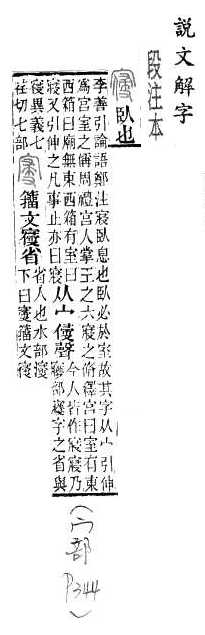 說文解字
段注本
臥也
李善引論語鄭注寑臥息也臥必於室故其字从宀引伸
爲宮室之偁周禮宮人掌王之六寑之脩釋宮曰室有東
西箱曰廟無東西箱有室曰
寑又引伸之凡事止亦曰寑
从宀㑴聲
今人皆作寢寢乃
㝱部寢字之省與
寑異義七
荏切七部
籒文寑省
省人也水部濅
下曰㝲籒文寑
(宀部
P344)